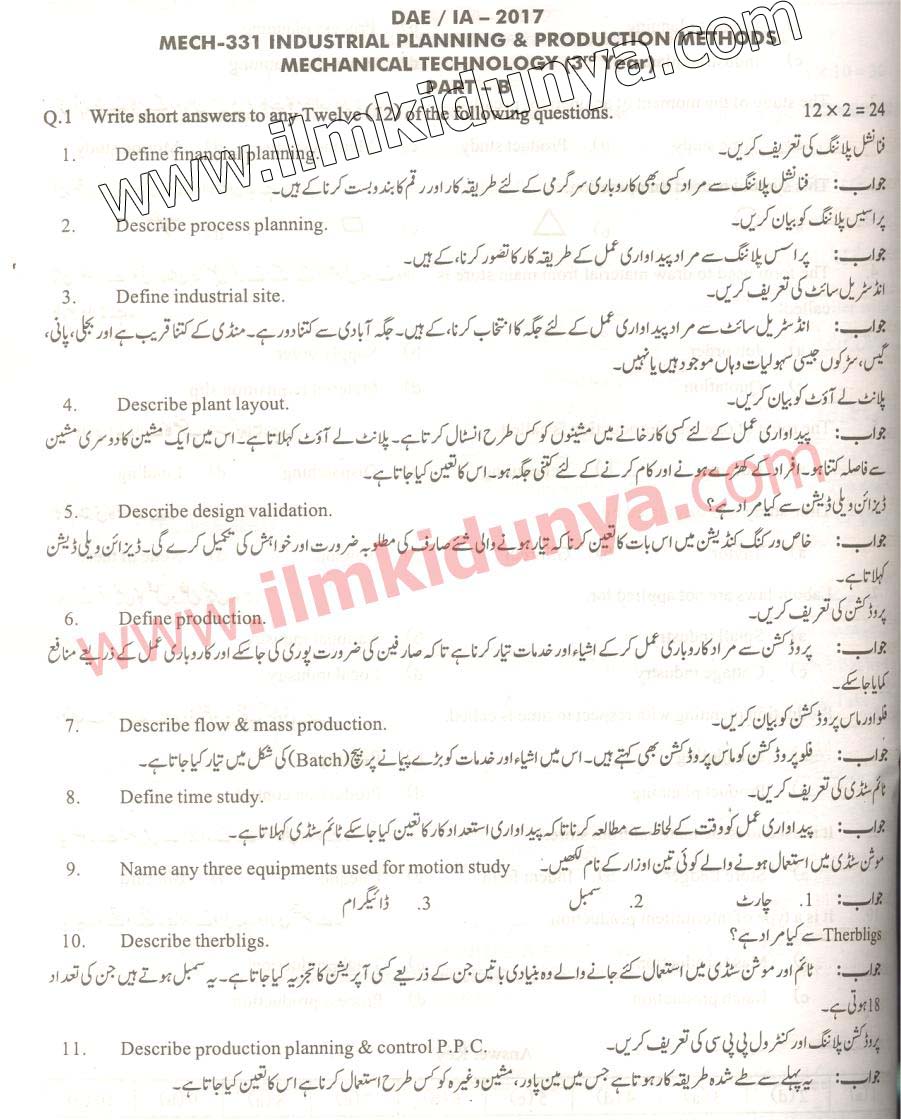 DAE / IA – 2017
MECH-331 INDUSTRIAL PLANNING & PRODUCTION METHODS
MECHANICAL TECHNOLOGY (3rd Year)
PART – B
Q.1 Write short answers to any Twelve (12) of the following questions. 12 × 2 = 24
1. Define financial planning. فنانشل پلاننگ کی تعریف کریں۔
جواب: فنانشل پلاننگ سے مراد کسی بھی کاروباری سرگرمی کے لئے طریقہ کار اور رقم کا بندوبست کرنا کے ہیں۔
2. Describe process planning. پراسیس پلاننگ کو بیان کریں۔
جواب: پراسس پلاننگ سے مراد پیداواری عمل کے طریقہ کار کا تصور کرنا، کے ہیں۔
3. Define industrial site. انڈسٹریل سائٹ کی تعریف کریں۔
جواب: انڈسٹریل سائٹ سے مراد پیداواری عمل کے لئے جگہ کا انتخاب کرنا، کے ہیں۔ جگہ آبادی سے کتنا دور ہے۔ منڈی کے کتنا قریب ہے اور بجلی، پانی،
گیس، سڑکوں جیسی سہولیات وہاں موجود ہیں یا نہیں۔
4. Describe plant layout. پلانٹ لے آؤٹ کو بیان کریں۔
جواب: پیداواری عمل کے لئے کسی کارخانے میں مشینوں کو کس طرح انسٹال کرتا ہے۔ پلانٹ لے آؤٹ کہلاتا ہے۔ اس میں ایک مشین کا دوسری مشین
سے فاصلہ کتنا ہو۔ افراد کے کھڑے ہونے اور کام کرنے کے لئے کتنی جگہ ہو۔ اس کا تعین کیا جاتا ہے۔
5. Describe design validation. ڈیزائن ویلی ڈیشن سے کیا مراد ہے؟
جواب: خاص ورکنگ کنڈیشن میں اس بات کا تعین کرنا کہ تیار ہونے والی شئے صارف کی مطلوبہ ضرورت اور خواہش کی تکمیل کرے گی۔ ڈیزائن ویلی ڈیشن
کہلاتا ہے۔
6. Define production. پروڈکشن کی تعریف کریں۔
جواب: پروڈکشن سے مراد کاروباری عمل کر کے اشیاء اور خدمات تیار کرنا ہے تاکہ صارفین کی ضرورت پوری کی جا سکے اور کاروباری عمل کے ذریعے منافع
کمایا جا سکے۔
7. Describe flow & mass production. فلو اور ماس پروڈکشن کو بیان کریں۔
جواب: فلو پروڈکشن کو ماس پروڈکشن بھی کہتے ہیں۔ اس میں اشیاء اور خدمات کو بڑے پیمانے پر بیچ (Batch) کی شکل میں تیار کیا جاتا ہے۔
8. Define time study. ٹائم سٹڈی کی تعریف کریں۔
جواب: پیداواری عمل کو وقت کے لحاظ سے مطالعہ کرنا تاکہ پیداواری استعداد کار کا تعین کیا جا سکے ٹائم سٹڈی کہلاتا ہے۔
9. Name any three equipments used for motion study موشن سٹڈی میں استعمال ہونے والے کوئی تین اوزار کے نام لکھیں۔
جواب: 1. چارٹ 2. سمبل 3. ڈائیگرام
10. Describe therbligs. Therbligs سے کیا مراد ہے؟
جواب: ٹائم اور موشن سٹڈی میں استعمال کئے جانے والے وہ بنیادی باتیں جن کے ذریعے کسی آپریشن کا تجزیہ کیا جاتا ہے۔ یہ سمبل ہوتے ہیں جن کی تعداد
18 ہوتی ہے۔
11. Describe production planning & control P.P.C. پروڈکشن پلاننگ اور کنٹرول پی پی سی کی تعریف کریں۔
جواب: یہ پہلے سے طے شدہ طریقہ کار ہوتا ہے جس میں مین پاور، مشین وغیرہ کو کس طرح استعمال کرنا ہے اس کا تعین کیا جاتا ہے۔
www.ilmkidunya.com
www.ilmkidunya.com